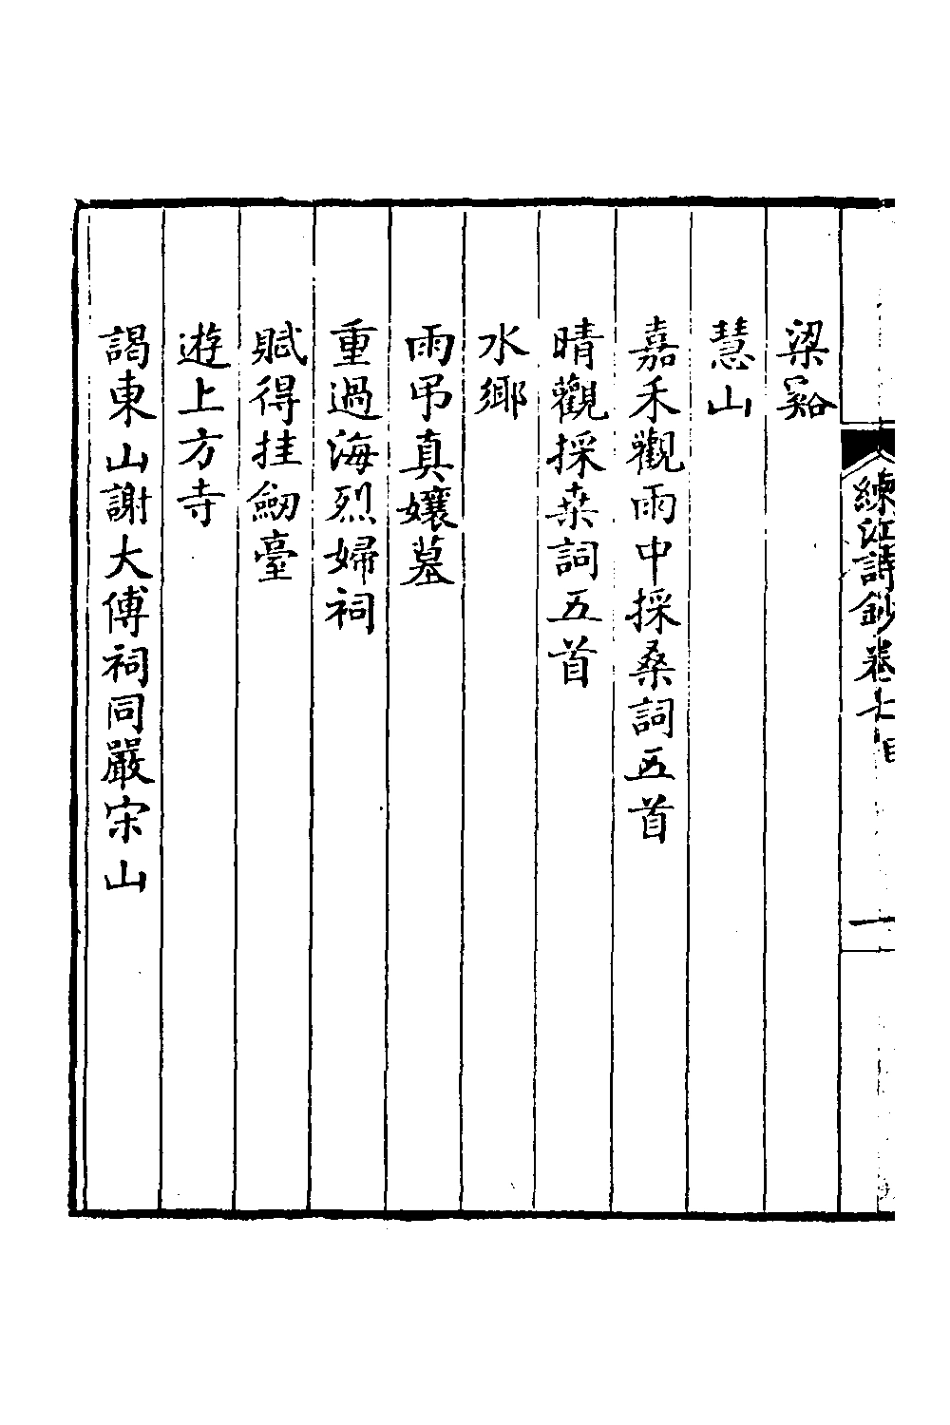 練江詩鈔卷七目
一
梁谿
慧山
嘉禾觀雨中採桑詞五首
晴觀採桒詞五首
水鄉
雨吊真孃墓
重過海烈婦祠
賦得挂劒臺
遊上方寺
謁東山謝大傅祠同嚴宋山